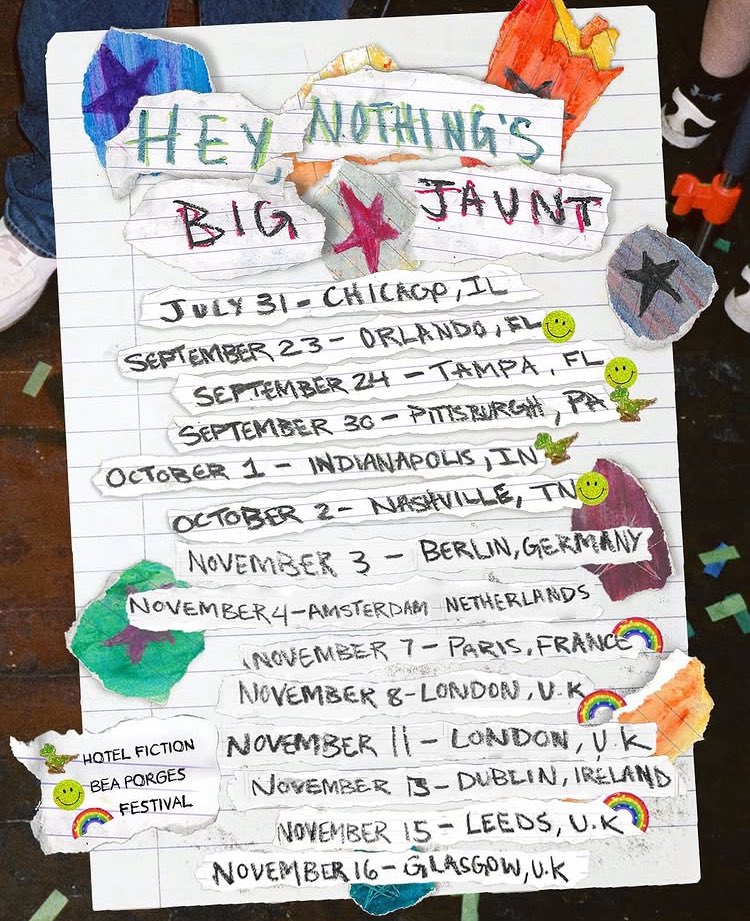 HEY, NOTHING'S
BIG JAUNT
JULY 31 - CHICAGO, IL
SEPTEMBER 23 - ORLANDO, FL
SEPTEMBER 24 - TAMPA, FL
SEPTEMBER 30 - PITTSBURGH, PA
OCTOBER 1 - INDIANAPOLIS, IN
OCTOBER 2 - NASHVILLE, TN
NOVEMBER 3 - BERLIN, GERMANY
NOVEMBER 4 - AMSTERDAM NETHERLANDS
NOVEMBER 7 - PARIS, FRANCE
NOVEMBER 8 - LONDON, U.K
NOVEMBER 11 - LONDON, U.K
NOVEMBER 13 - DUBLIN, IRELAND
NOVEMBER 15 - LEEDS, U.K
NOVEMBER 16 - GLASGOW, U.K
HOTEL FICTION
BEA PORGES
FESTIVAL